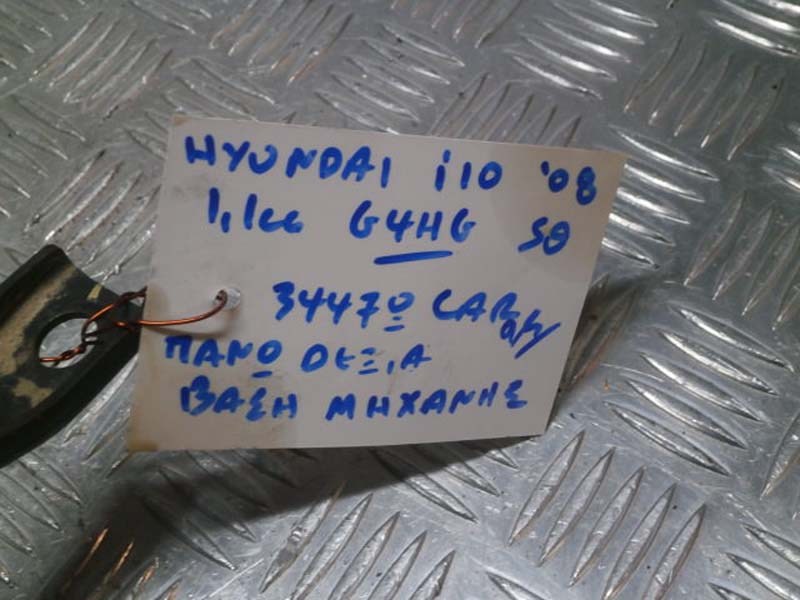 HYUNDAI i10 '08
1,1cc G4HG 5θ
34470 CAR
ΠΑΝΩ ΔΕΞΙΑ
ΒΑΣΗ ΜΗΧΑΝΗΣ